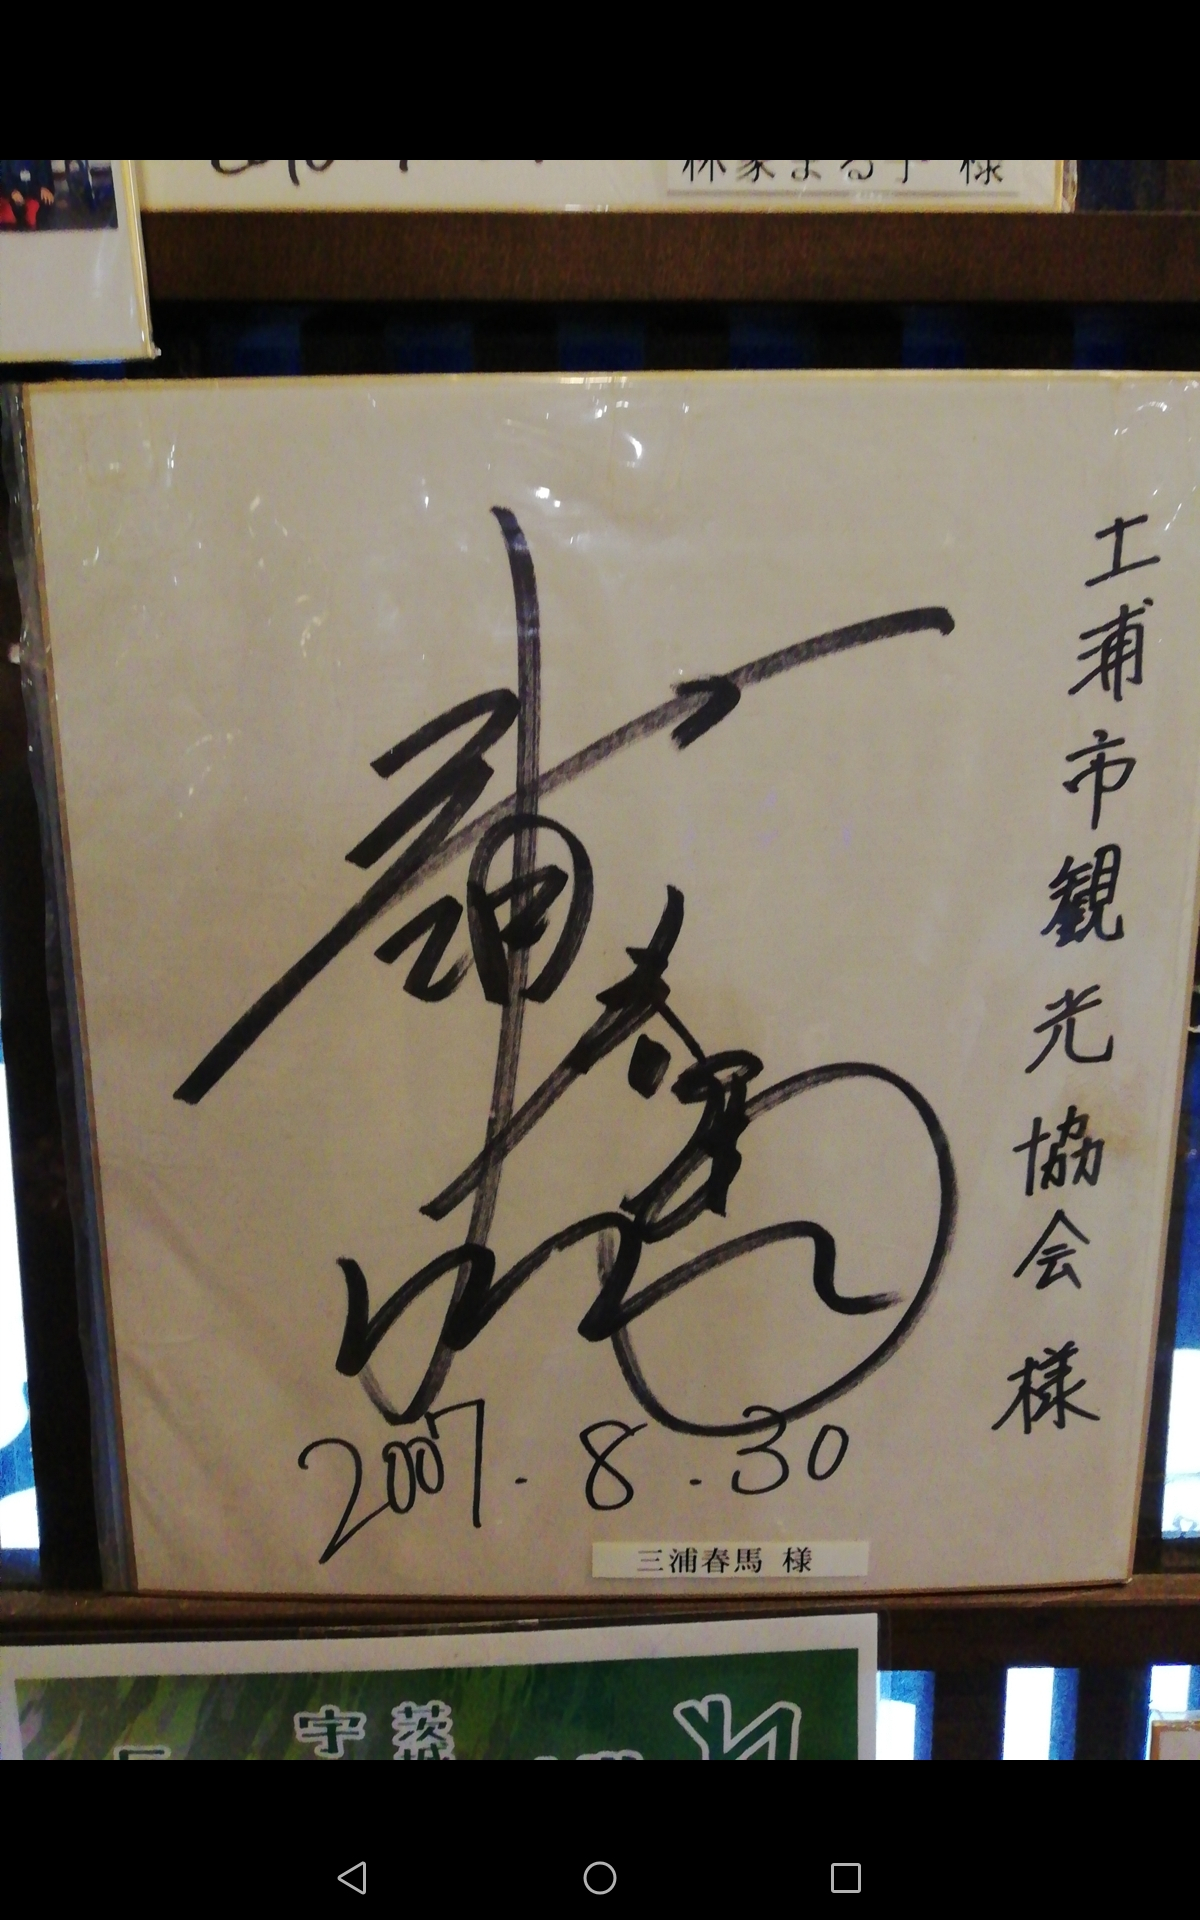 林家まる子 様
土浦市観光協会様
三浦春馬
2007.8.30
三浦春馬 様
茨城
宇